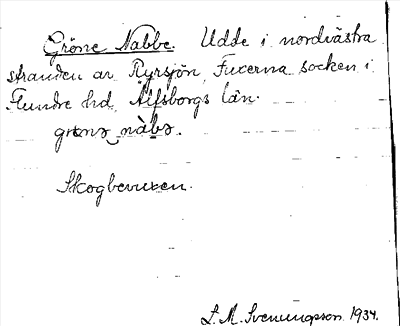 Gröne Nabbe. Udde i nordvästra
stranden av Ryrsjön, Fuxerna socken i
Flundre hd, Älfsborgs län.
grønə nàbə.
Skogbevuxen.
L. M. Svenungsson. 1934.